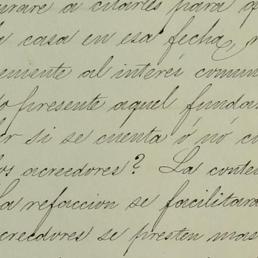 curare a citarles para q
a casa en esa fecha, n
emente al interés comun
lo presente aquel funda
er si se cuenta ó nó co
os acreedores? La conte
la refaccion se facilitara
creedores se presten mas